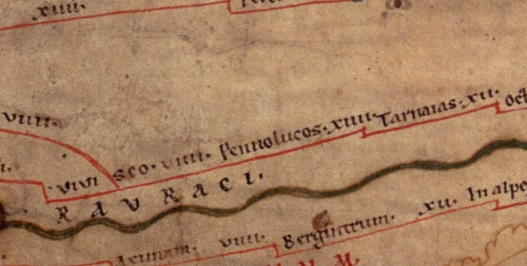 xiiii.
viiii.
vivi sco. viiii. Pennolucos. xiiii. Tarnaias. xii. oct
RAVRACI.
Arinum. viiii. Bergintrum. xii. In alpe